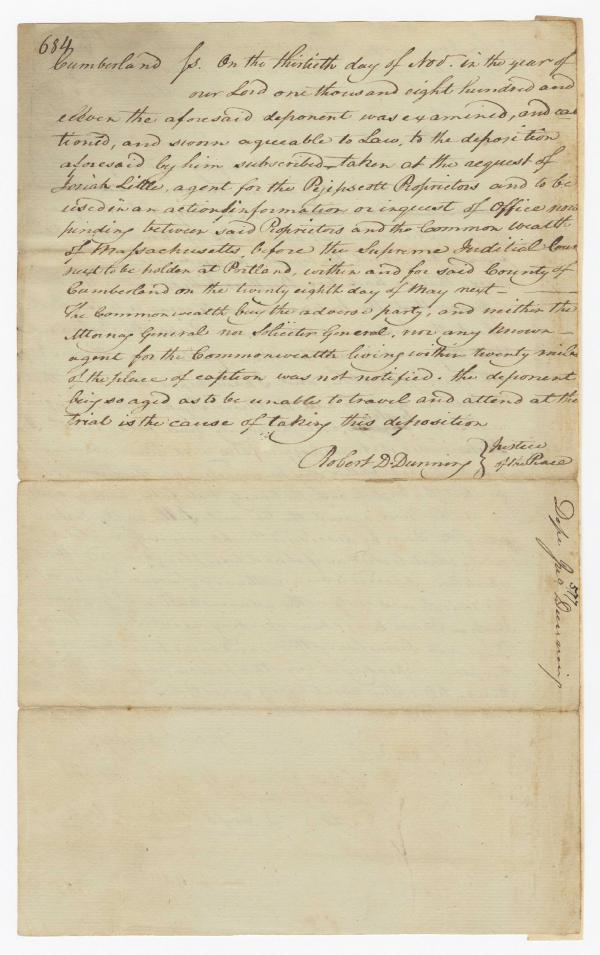 684
Cumberland ss. On the thirtieth day of Nov. in the year of
our Lord one thousand eight hundred and
eleven the aforesaid deponent was examined, and cau
tioned, and sworn agreeable to Law, to the deposition
aforesaid by him subscribed taken at the request of
Josiah Little, agent for the Pejepscott Proprietors and to be
used in an action of information or inquest of Office now
pending between said Proprietors and the Common wealth
of Massachusetts, before the Supreme Juditial Cour
next to be holden at Portland, within and for said County of
Cumberland on the twenty eighth day of May next—
The Commonwealth being the adverse party, and neither the
Attorney General nor Soliciter General, nor any known—
agent for the Commonwealth living within twenty miles
of the place of caption was not notified. the deponent
being so aged as to be unable to travel and attend at the
trial is the cause of taking this deposition
Robert D. Dunning } Justice
of the Peace
Depo Jno Dunning
577